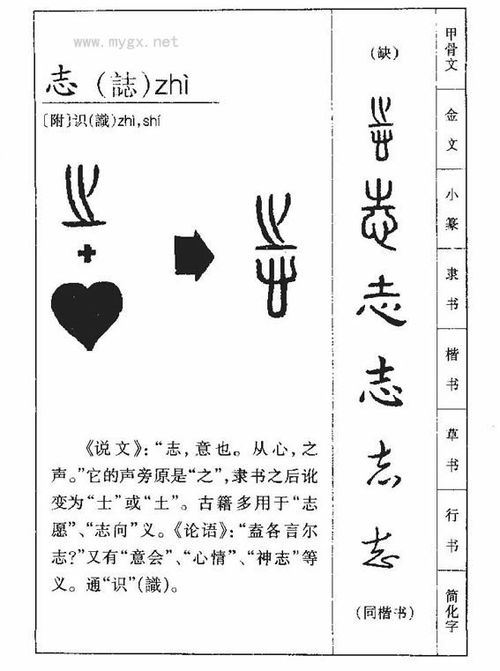 www.mygx.net
志（誌）zhì
〔附〕识(識)zhì,shí
《说文》：“志，意也。从心，之
声。”它的声旁原是“之”，隶书之后讹
变为“士”或“土”。古籍多用于“志
愿”、“志向”义。《论语》：“盍各言尔
志？”又有“意会”、“心情”、“神志”等
义。通“识”(識)。
(缺)
志
志
志
志
志
志
(同楷书)
甲骨文
金文
小篆
隶书
楷书
草书
行书
简化字